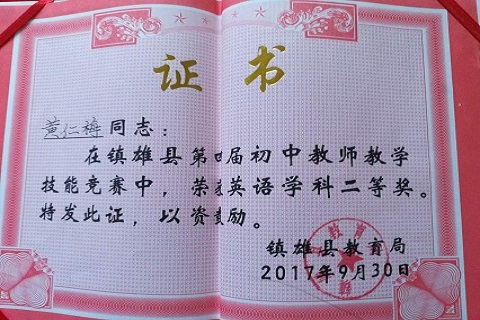 证书
黄仁梅同志：
在镇雄县第四届初中教师教学
技能竞赛中，荣获英语学科二等奖。
特发此证，以资鼓励。
镇雄县教育局
2017年9月30日